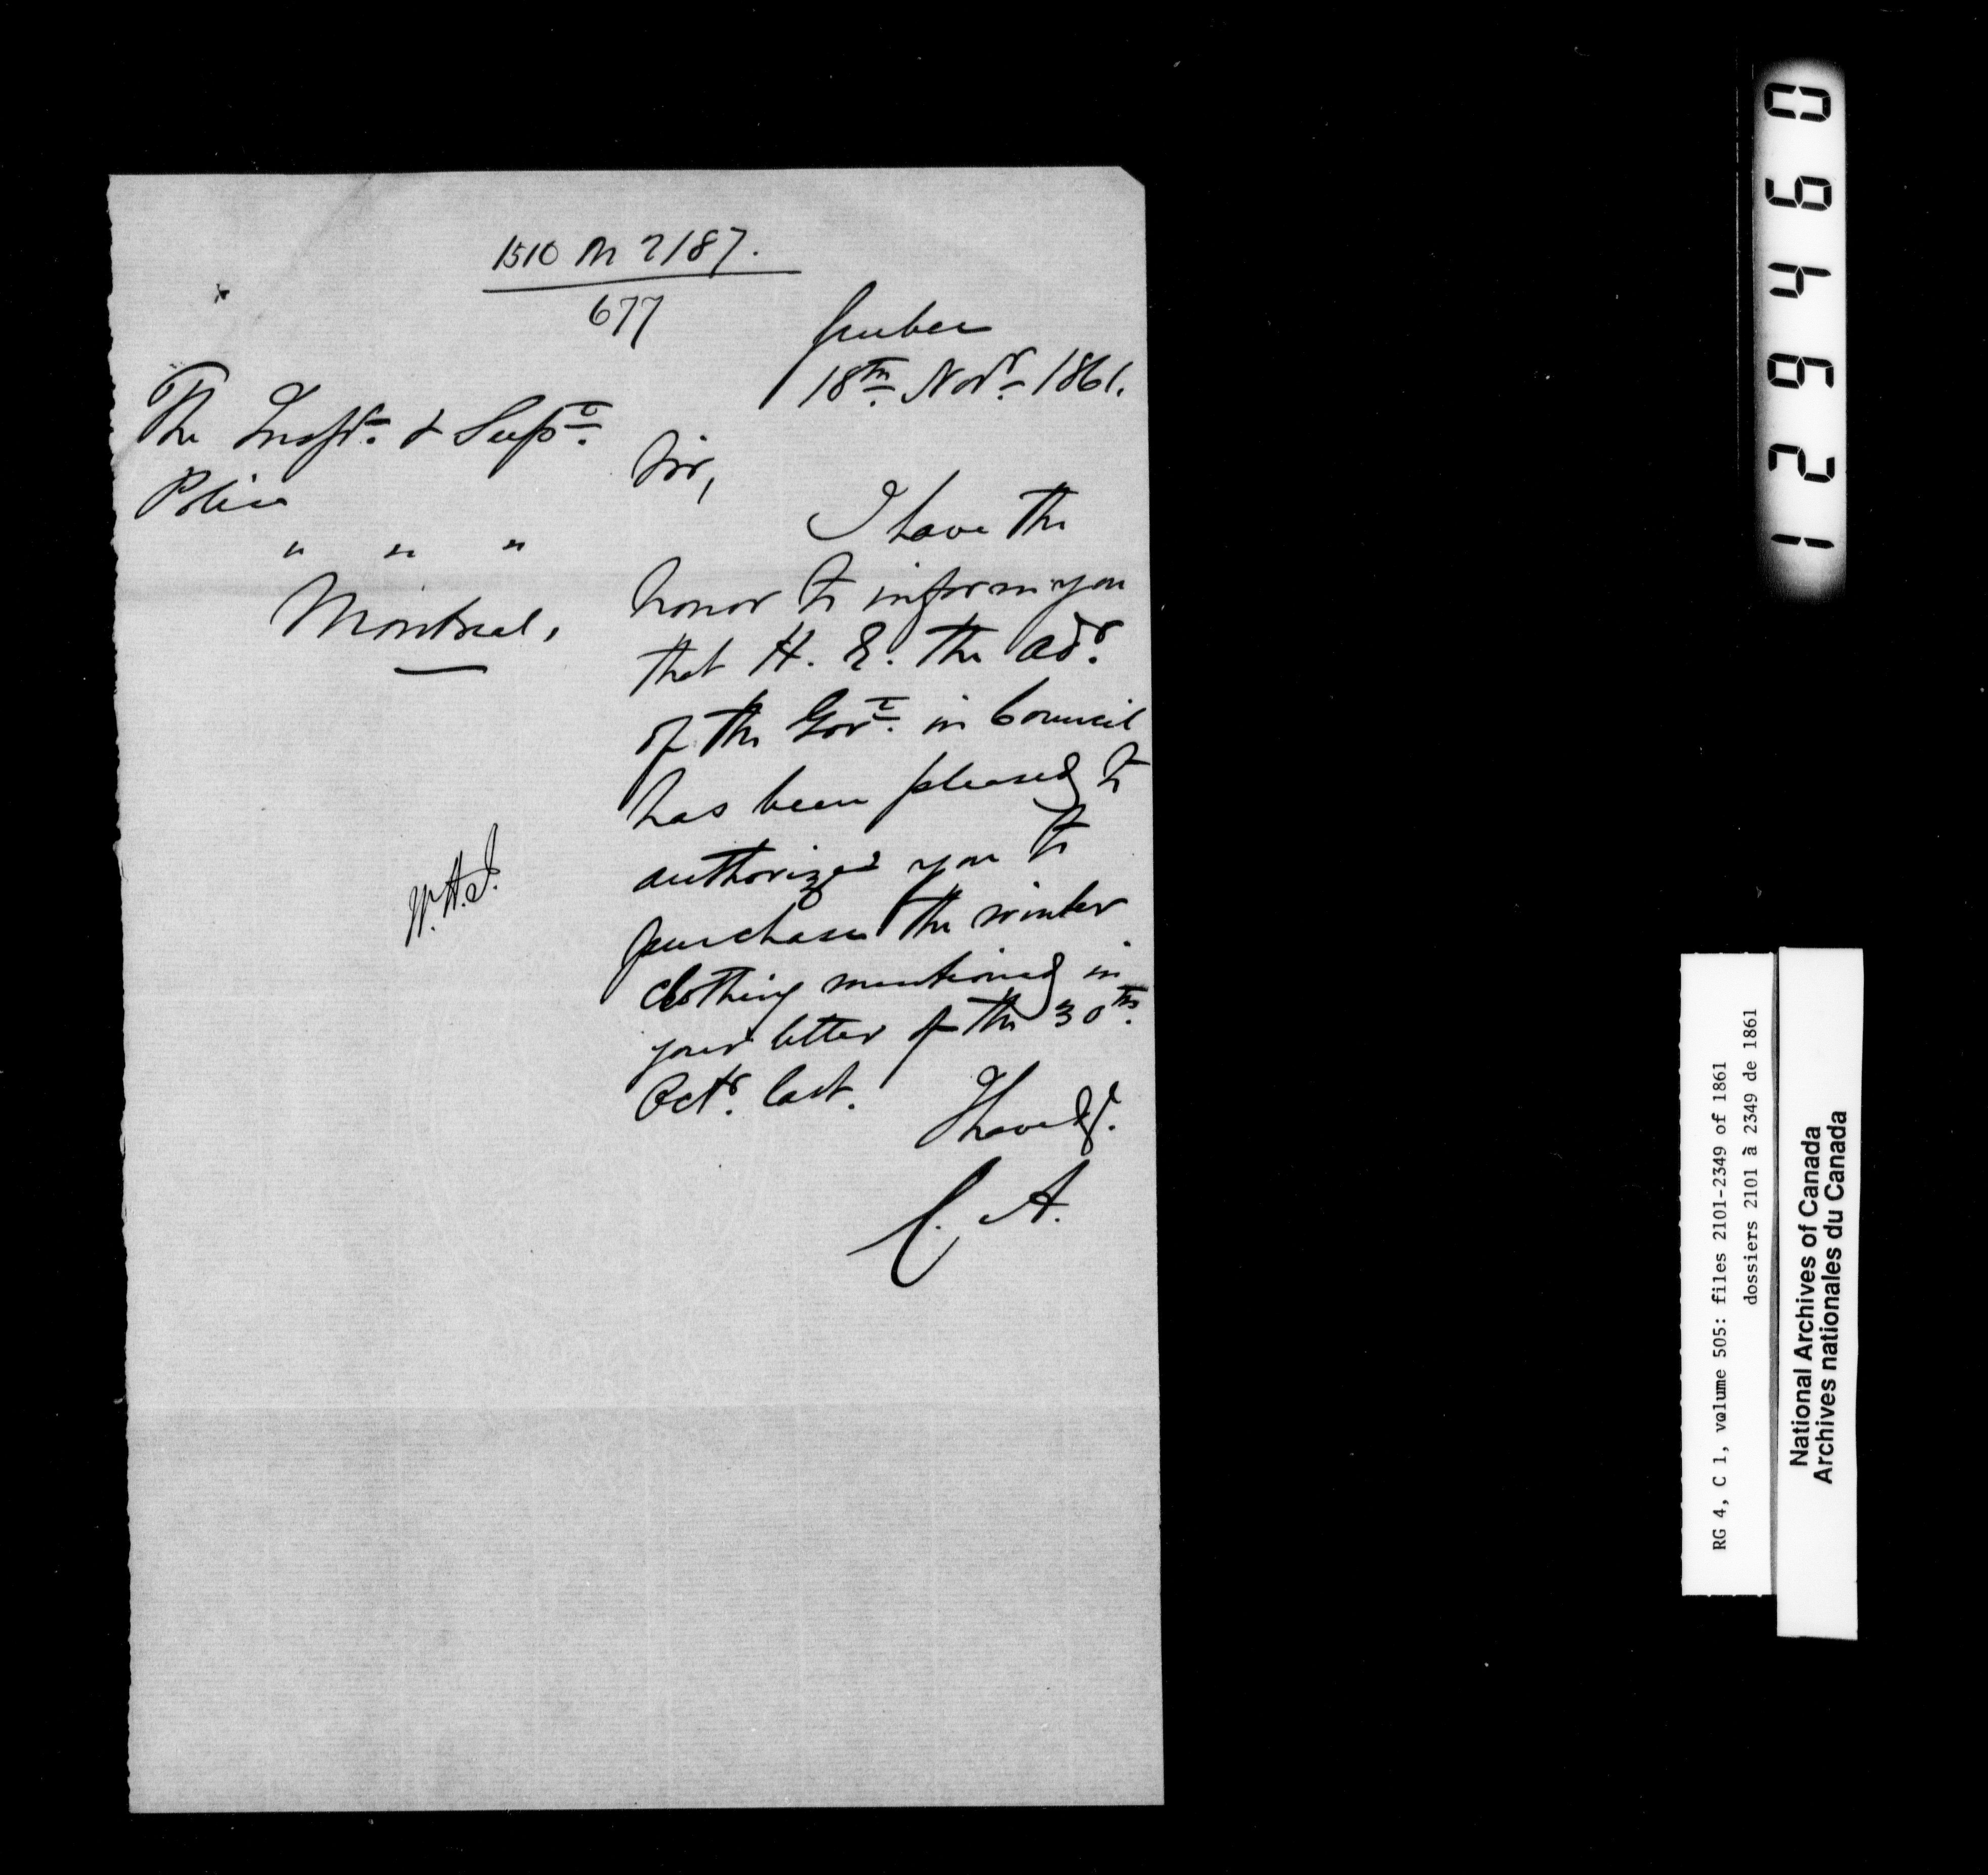 1510 M 2187.
677
Quebec
18th Novr 1861.
The Inspr. & Supt.
Police
" " "
Montreal,
Sir,
I have the
honor to inform you
that H. E. the Adr.
of the Govt. in Council
has been pleased to
authorize you to
purchase the winter
clothing mentioned in
your letter of the 30th.
Octr. last.
I have &c.
C. A.
W.H.J.
129460
RG 4, C 1, volume 505: files 2101-2349 of 1861
dossiers 2101 à 2349 de 1861
National Archives of Canada
Archives nationales du Canada